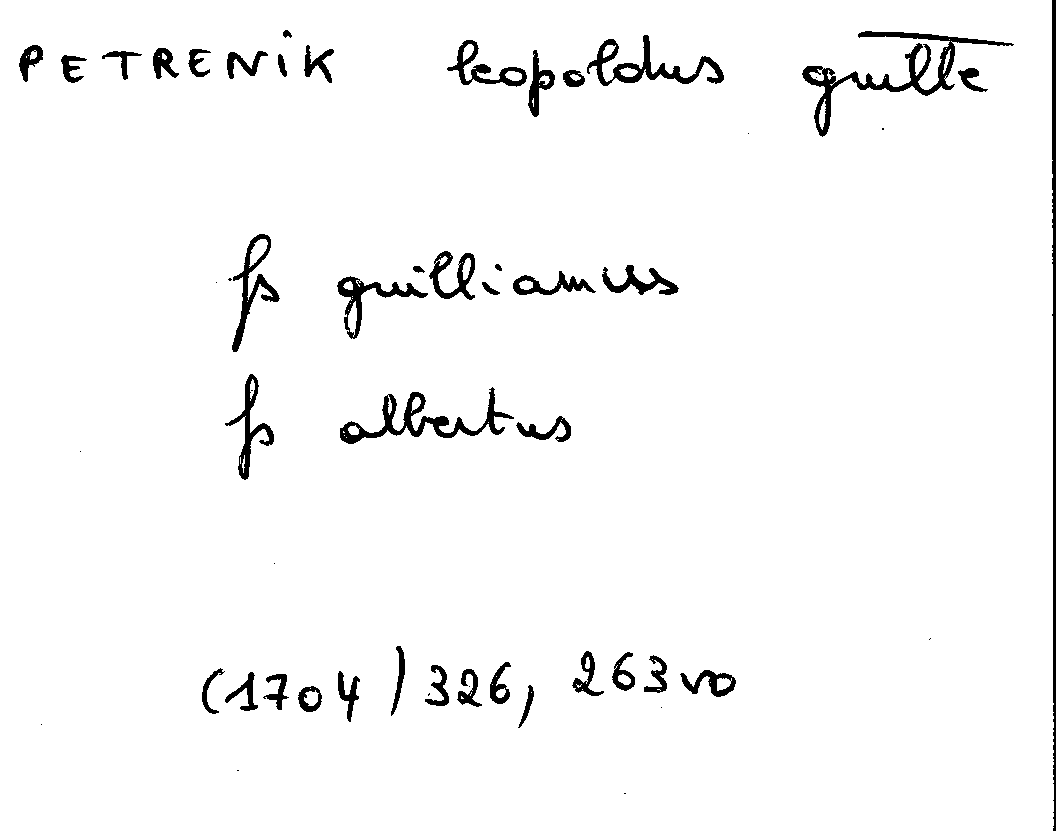 PETRENIK leopoldus guille
fs guilliamus
fs albertus
(1704) 326, 263vo